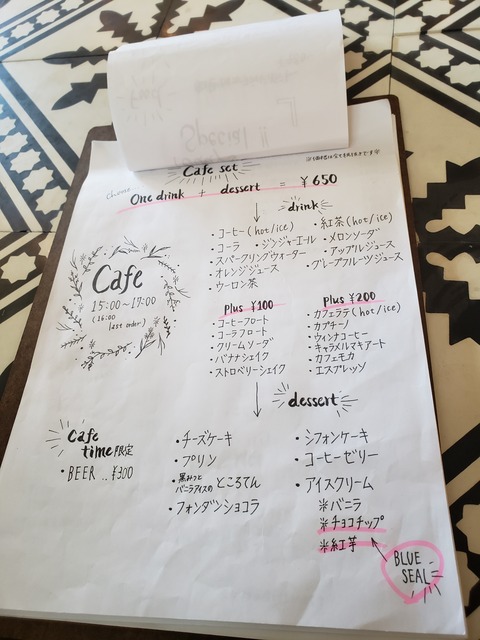 Cafe set
choose
One drink + dessert = ¥650
drink
・コーヒー(hot/ice)
・紅茶(hot/ice)
・コーラ ・ジンジャーエール
・メロンソーダ
・スパークリングウォーター
・アップルジュース
・オレンジジュース
・グレープフルーツジュース
・ウーロン茶
Cafe
15:00~17:00
(16:00
last order)
plus ¥100
・コーヒーフロート
・コーラフロート
・クリームソーダ
・バナナシェイク
・ストロベリーシェイク
plus ¥200
・カフェラテ(hot/ice)
・カプチーノ
・ウィンナコーヒー
・キャラメルマキアート
・カフェモカ
・エスプレッソ
dessert
Cafe
time限定
・BEER ..¥300
・チーズケーキ
・プリン
・黒みつと
バニラアイスのところてん
・フォンダンショコラ
・シフォンケーキ
・コーヒーゼリー
・アイスクリーム
※バニラ
※チョコチップ
※紅芋
BLUE
SEAL